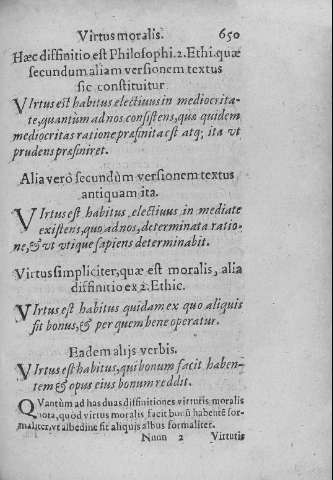 Virtus moralis. 650
Hæc diffinitio est Philosophi.2.Ethi.quæ
secundum aliam versionem textus
sic constituitur
VIrtus est habitus electiuus in mediocrita-
te,quantùm ad nos consistens,quæ quidem
mediocritas ratione præfinita est atq; ita vt
prudens præfiniret.
Alia verò secundùm versionem textus
antiquam ita.
VIrtus est habitus electiuus in mediate
existens,quo ad nos,determinata ratio-
ne,& vt vtique sapiens determinabit.
Virtus simpliciter,quæ est moralis, alia
diffinitio ex 2.Ethic.
VIrtus est habitus quidam ex quo aliquis
fit bonus,& per quem bene operatur.
Eadem alijs verbis.
VIrtus est habitus,qui bonum facit haben-
tem & opus eius bonum reddit.
QVantùm ad has duas diffinitiones virtutis moralis
nota,quòd virtus moralis facit bonũ habentẽ for-
maliter,vt albedine fit aliquis albus formaliter.
Nnnn 2 Virtutis